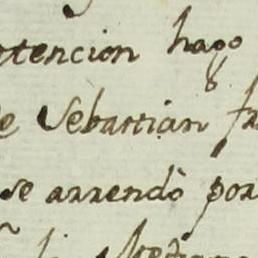 tencion hago
e Sebastian fr
se arrendò por